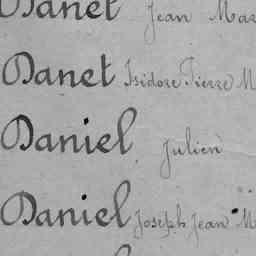 Danet Jean Mar
Danet Isidore Pierre M
Daniel Julien
Daniel Joseph Jean M